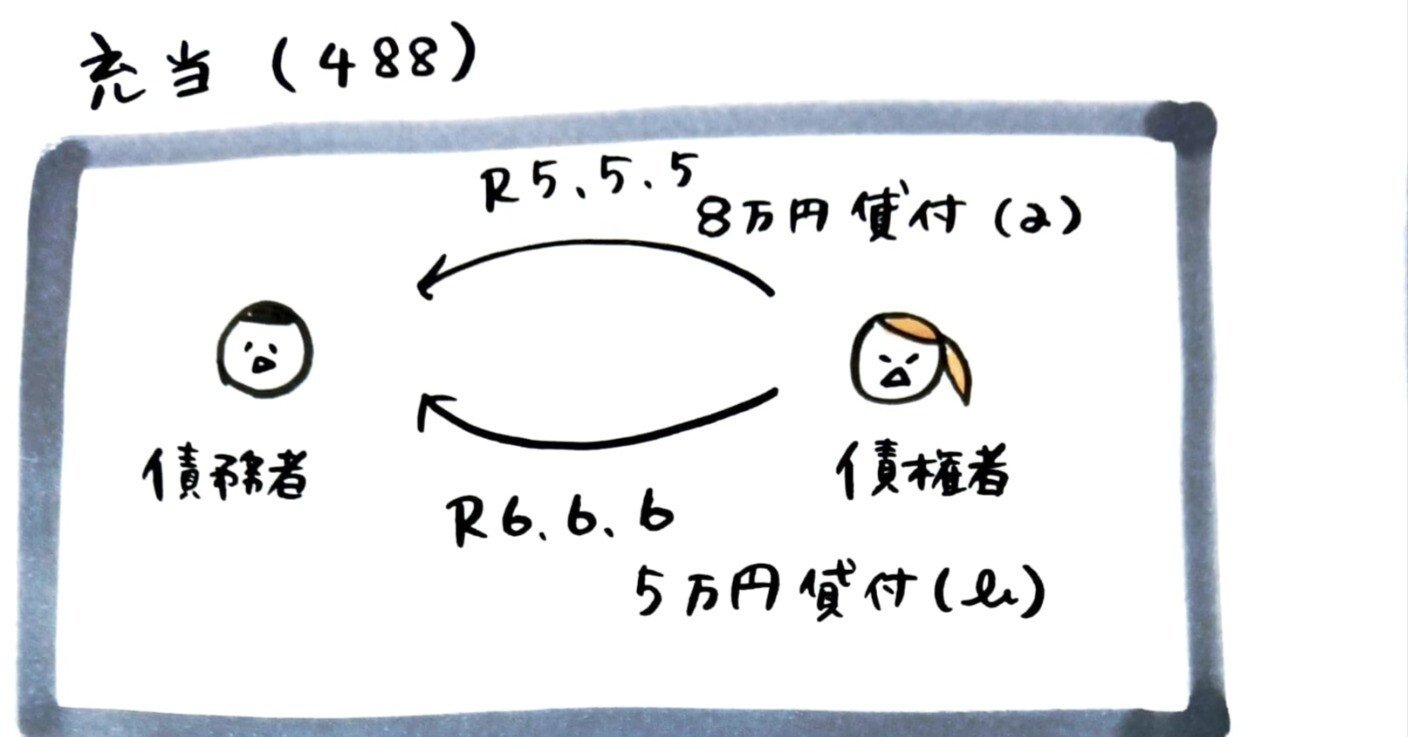 充当(488)
R5、5、5
8万円貸付(a)
債務者
債権者
R6、6、6
5万円貸付(b)